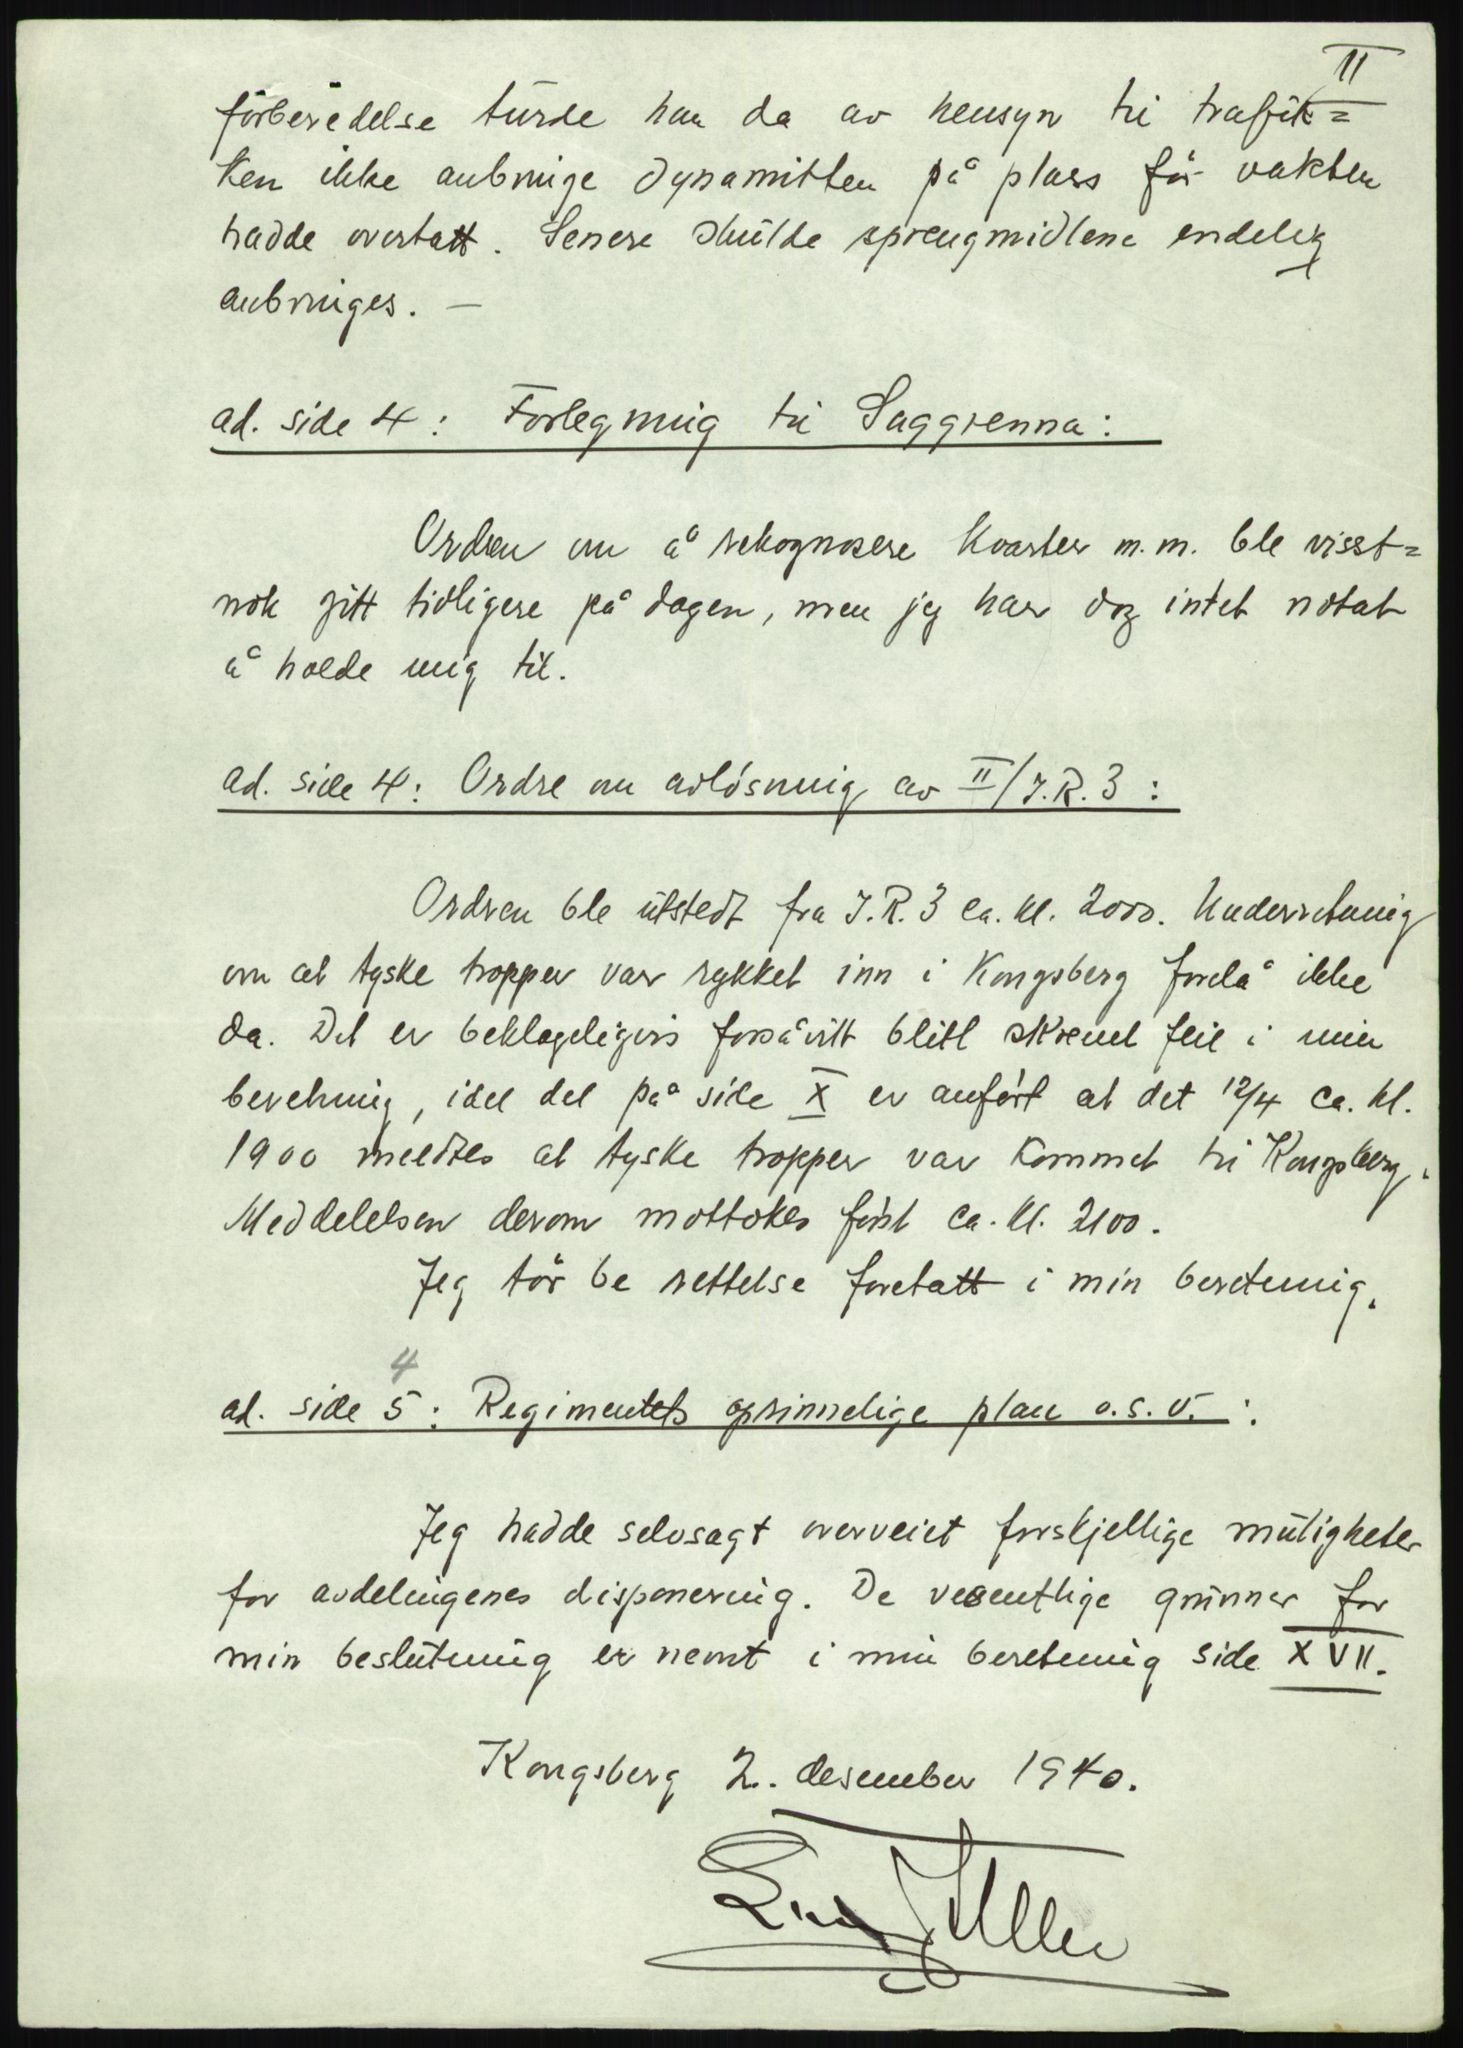 II
förberedelse turde han da av hensyn til trafik=
ken ikke anbringe dynamitten på plass før vakten
hadde overtatt. Senere skulde sprengmidlene endelig
anbringes. —
ad. side 4: Forlegning til Saggrenna:
Ordren om å rekognosere kvarter m.m. ble visst=
nok gitt tidligere på dagen, men jeg har dog intet notat
å holde mig til.
ad. side 4: Ordre om avløsning av II/J.R.3:
Ordren ble utstedt fra J.R.3 ca. kl. 2000. Underretning
om at tyske tropper var rykket inn i Kongsberg forelå ikke
da. Det er beklageligvis forsåvitt blitt skrevet feil i min
beretning, idet det på side X er anført at det 12/4 ca. kl.
1900 meldtes at tyske tropper var kommet til Kongsberg.
Meddelelsen derom mottokes først ca. kl. 2100.
Jeg tør be rettelse foretatt i min beretning.
4
ad. side 5: Regimentets oprinnelige plan o.s.v. :
Jeg hadde selvsagt overveiet forskjellige muligheter
for avdelingenes disponering. De vesentlige grunner for
min beslutning er nevnt i min beretning side XVII.
Kongsberg 2. desember 1940.